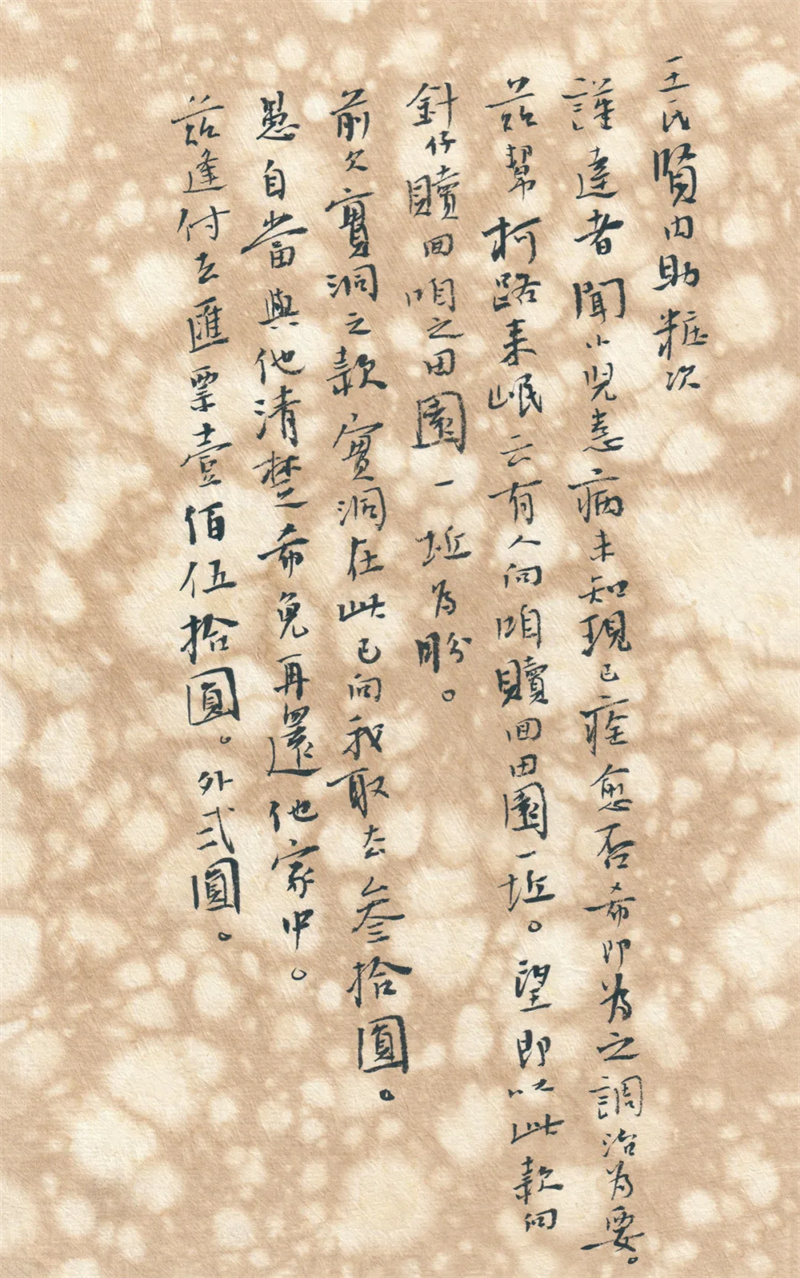 王氏賢內助粧次
謹達者聞小兒患病未知現已痊愈否希即為之調治為要。
茲幫柯路來岷云有人向咱贖回田園一坵。望即以此款向
針仔贖回咱之田園一坵為盼。
前欠寶洞之款寶洞在此已向我取去叁拾圓。
愚自當與他清楚希免再還他家中。
茲逢付去匯票壹佰伍拾圓。外弍圓。